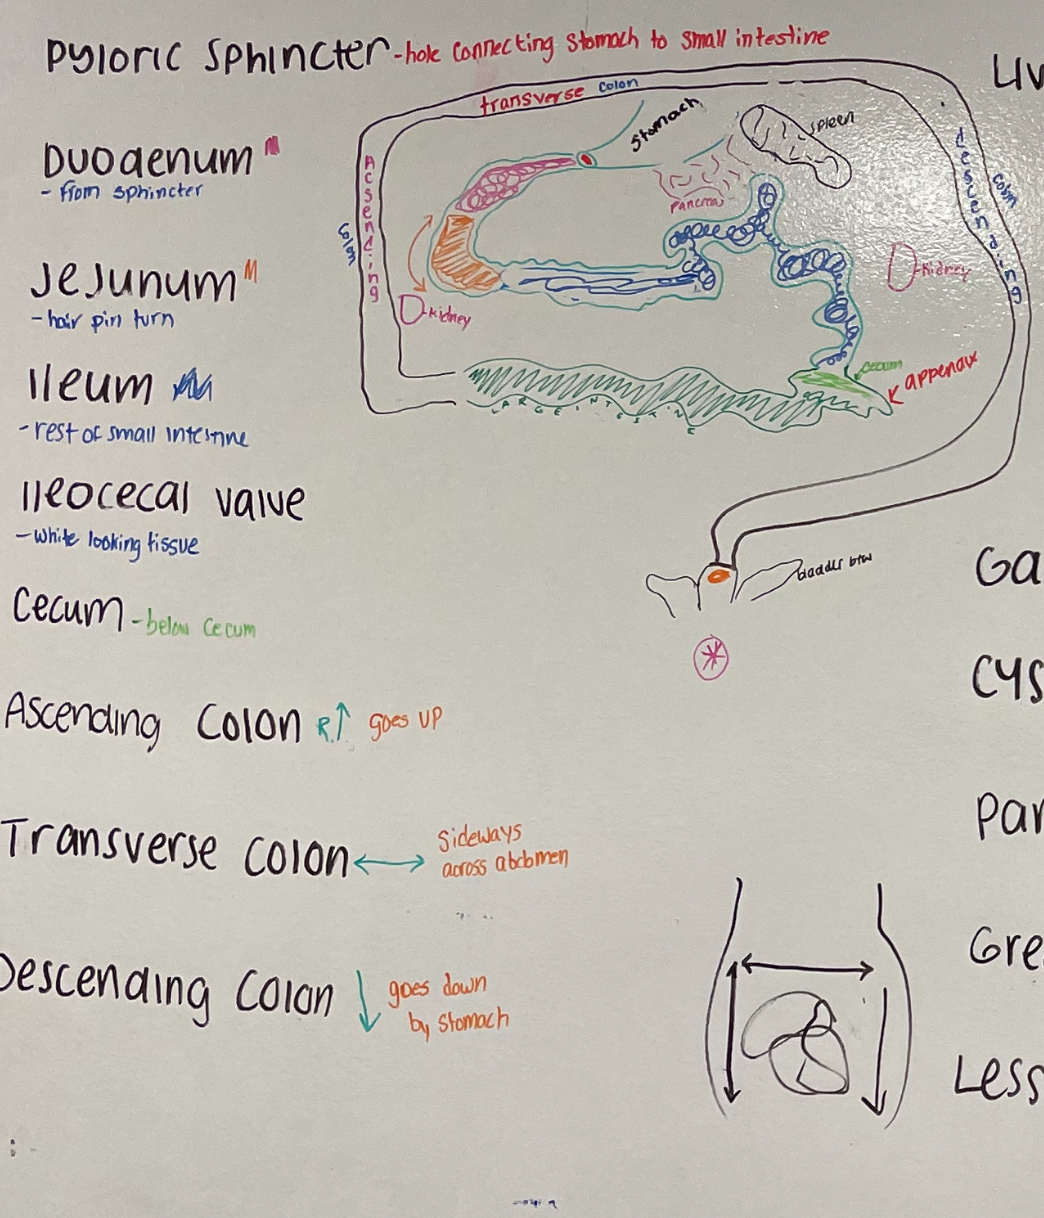 Pyloric Sphincter - hole connecting stomach to small intestine
Duodenum
- from sphincter
Jejunum
- hair pin turn
Ileum
- rest of small intestine
Ileocecal valve
- white looking tissue
Cecum - below cecum
Ascending Colon R↑ goes up
Transverse Colon ←→ sideways
across abdomen
Descending Colon ↓ goes down
by stomach
transverse colon
Stomach
spleen
pancreas
Acsending
descending
colon
kidney
kidney
cecum
appendix
LARGE INTESTINE
bladder btw
Liv
Ga
Cys
Par
Gre
Less